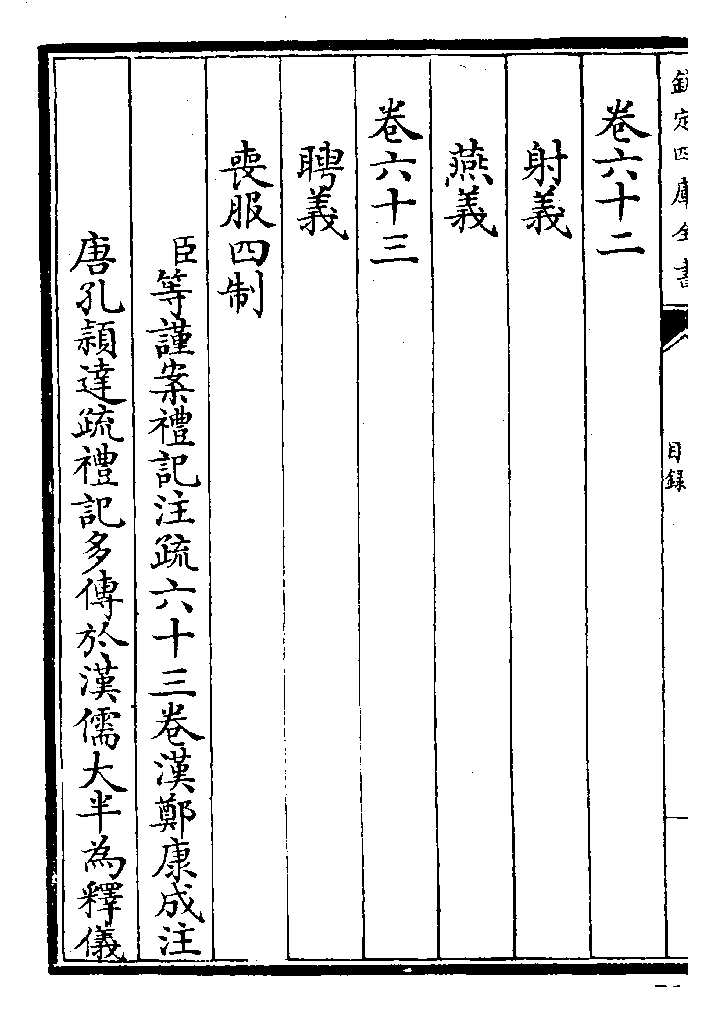 欽定四庫全書
目録
卷六十二
射義
燕義
卷六十三
聘義
喪服四制
臣等謹案禮記注疏六十三卷漢鄭康成注
唐孔頴達疏禮記多傳於漢儒大半為釋儀